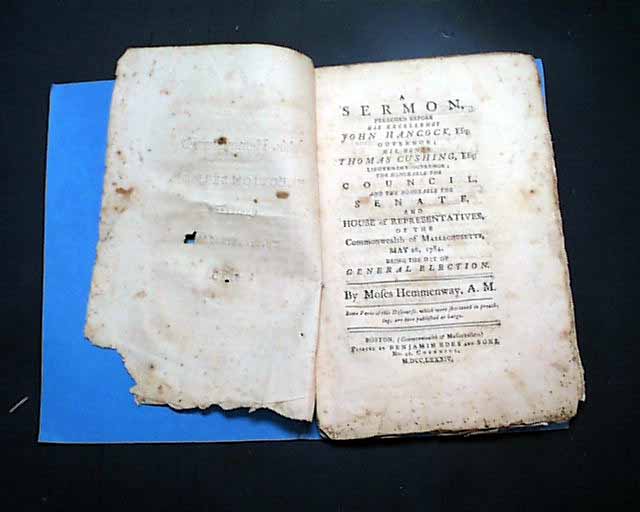 A
SERMON,
PREACHED BEFORE
HIS EXCELLENCY
JOHN HANCOCK, Esq;
GOVERNOR;
HIS HONOR
THOMAS CUSHING, Esq;
LIEUTENANT-GOVERNOR;
THE HONORABLE THE
COUNCIL,
AND THE HONORABLE THE
SENATE,
AND
HOUSE of REPRESENTATIVES,
OF THE
Commonwealth of MASSACHUSETTS,
MAY 26, 1784.
BEING THE DAY OF
GENERAL ELECTION.
By Moses Hemmenway, A. M.
Some Parts of this Discourse, which were shortened in preach-
ing, are here published at large.
BOSTON, (Commonwealth of Massachusetts)
PRINTED BY BENJAMIN EDES AND SONS,
No. 42, CORNHILL,
M,DCC,LXXXIV.